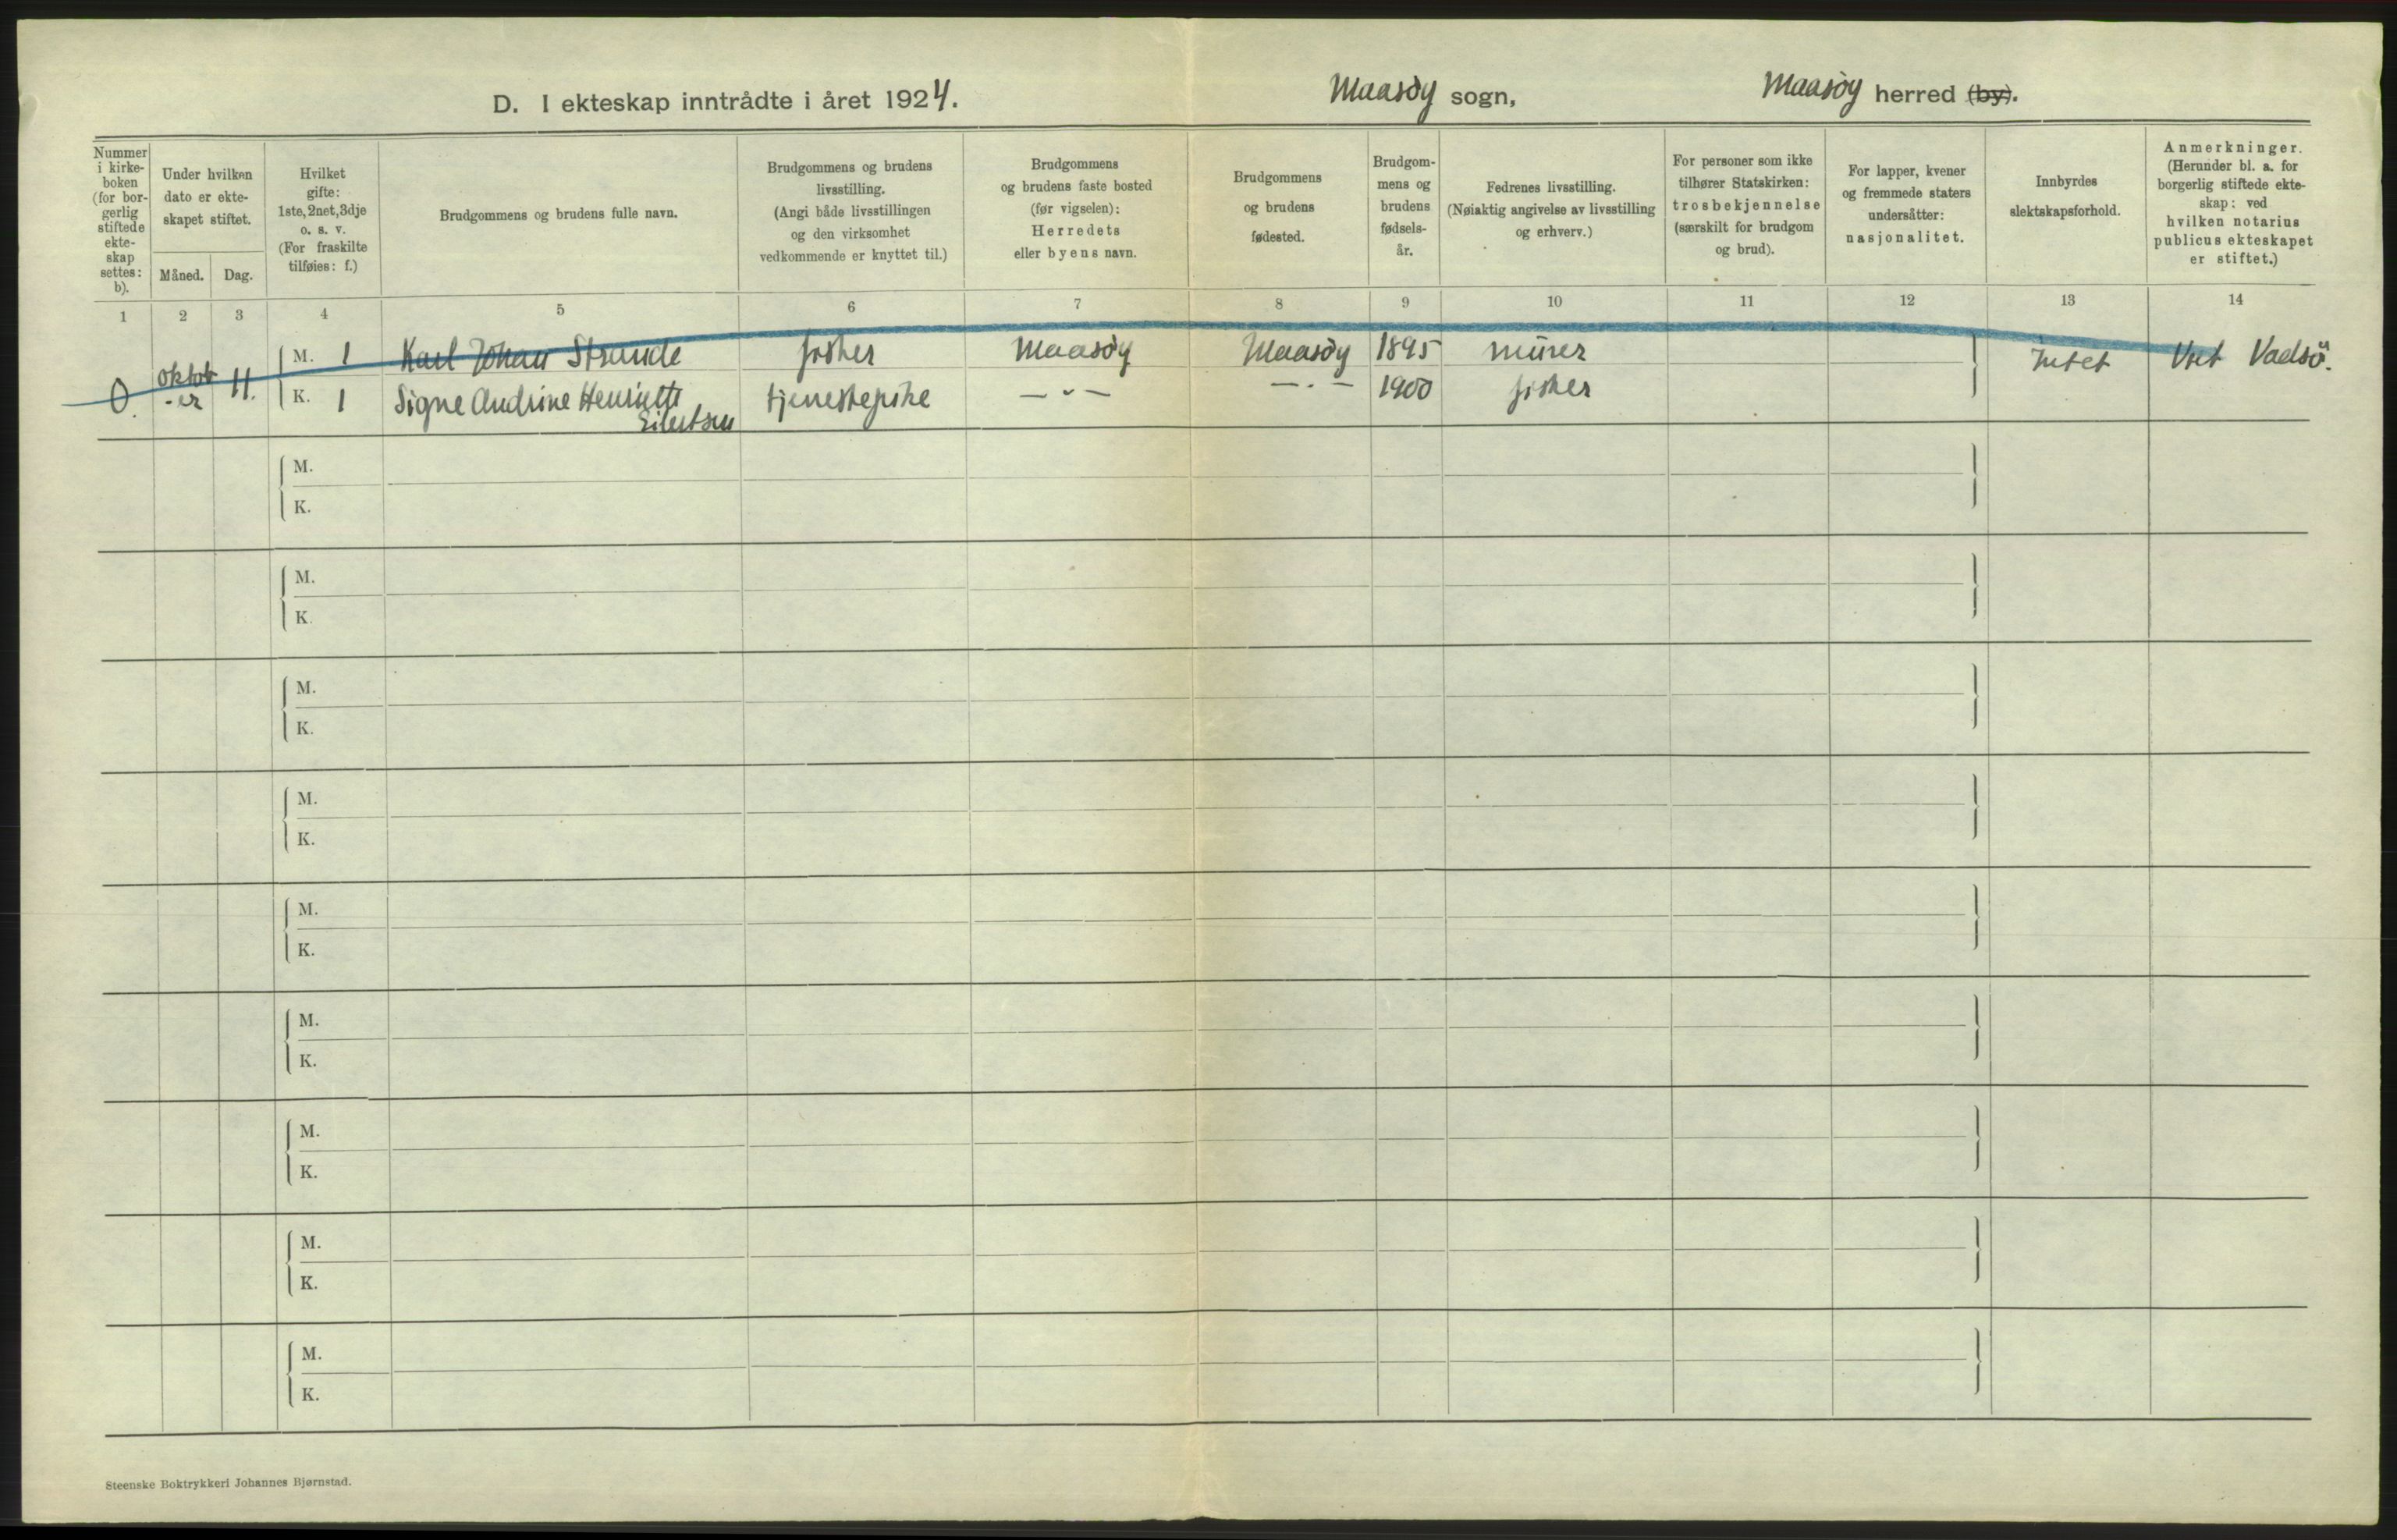 D. I ekteskap inntrådte i året 1924.
Maasöy sogn,
Maasöy herred (by).
Nummer
i kirke-
boken
(for bor-
gerlig
stiftede
ekte-
skap
settes:
b).
Under hvilken
dato er ekte-
skapet stiftet.
Måned.
Dag.
Hvilket
gifte:
1ste, 2net, 3dje
o. s. v.
(For fraskilte
tilføies: f.)
Brudgommens og brudens fulle navn.
Brudgommens og brudens
livsstilling.
(Angi både livsstillingen
og den virksomhet
vedkommende er knyttet til.)
Brudgommens
og brudens faste bosted
(før vigselen):
Herredets
eller byens navn.
Brudgommens
og brudens
fødested.
Brudgom-
mens og
brudens
fødsels-
år.
Fedrenes livsstilling.
(Nøiaktig angivelse av livsstilling
og erhverv.)
For personer som ikke
tilhører Statskirken:
trosbekjennelse
(særskilt for brudgom
og brud).
For lapper, kvener
og fremmede staters
undersåtter:
nasjonalitet.
Innbyrdes
slektskapsforhold.
Anmerkninger.
(Herunder bl. a. for
borgerlig stiftede ekte-
skap: ved
hvilken notarius
publicus ekteskapet
er stiftet.)
1 2 3 4 5 6 7 8 9 10 11 12 13 14
M. 1 Karl Johan Strande fisker Maasöy Maasöy 1895 murer intet Vadsö.
0. oktob
-er 11.
K. 1 Signe Andrine Henriette tjenestepike — " — — . — 1900 fisker
Eilertsen
M.
K.
M.
K.
M.
K.
M.
K.
M.
K.
M.
K.
M.
K.
M.
K.
M.
K.
Steenske Boktrykkeri Johannes Bjørnstad.